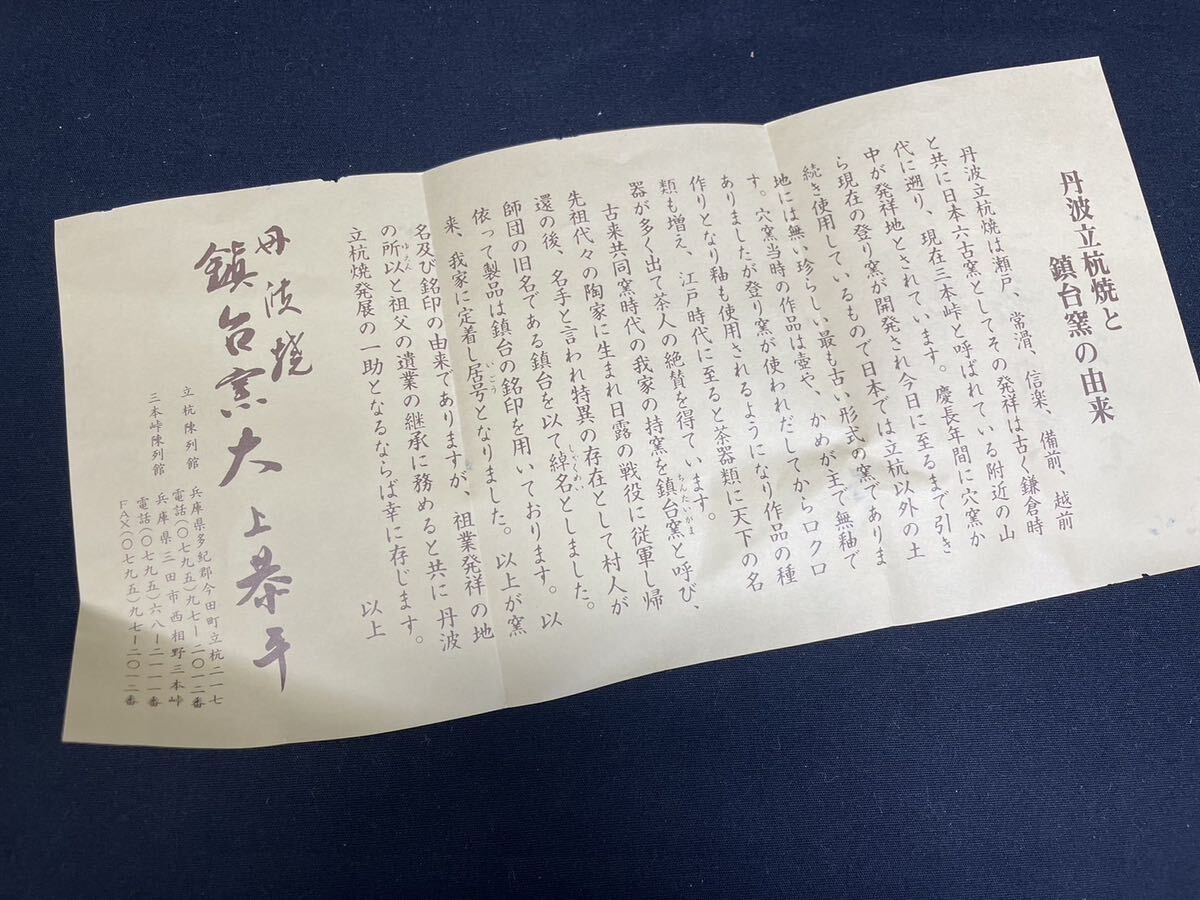 丹波立杭焼と
鎮台窯の由来
丹波立杭焼は瀬戸、常滑、信楽、備前、越前
と共に日本六古窯としてその発祥は古く鎌倉時
代に遡り、現在三本峠と呼ばれている附近の山
中が発祥地とされています。慶長年間に穴窯か
ら現在の登り窯が開発され今日に至るまで引き
続き使用しているもので日本では立杭以外の土
地には無い珍らしい最も古い形式の窯でありま
す。穴窯当時の作品は壷や、かめが主で無釉で
ありましたが登り窯が使われだしてからロクロ
作りとなり釉も使用されるようになり作品の種
類も増え、江戸時代に至ると茶器類に天下の名
器が多く出て茶人の絶賛を得ています。
古来共同窯時代の我家の持窯を鎮台窯と呼び、
ちんたいがま
先祖代々の陶家に生まれ日露の戦役に従軍し帰
還の後、名手と言われ特異の存在として村人が
師団の旧名である鎮台を以て綽名としました。
しゃくめい
依って製品は鎮台の銘印を用いております。以
来、我家に定着し居号となりました。以上が窯
いごう
名及び銘印の由来でありますが、祖業発祥の地
の所以と祖父の遺業の継承に務めると共に丹波
ゆえん
立杭焼発展の一助となるならば幸に存じます。
以上
丹波焼
鎮台窯大上恭平
立杭陳列館 兵庫県多紀郡今田町立杭二一七
電話(〇七九五)九七ー二〇一二番
三本峠陳列館 兵庫県三田市西相野三本峠
電話(〇七九五)六八ー二一一一番
FAX(〇七九五)九七ー二〇一二番